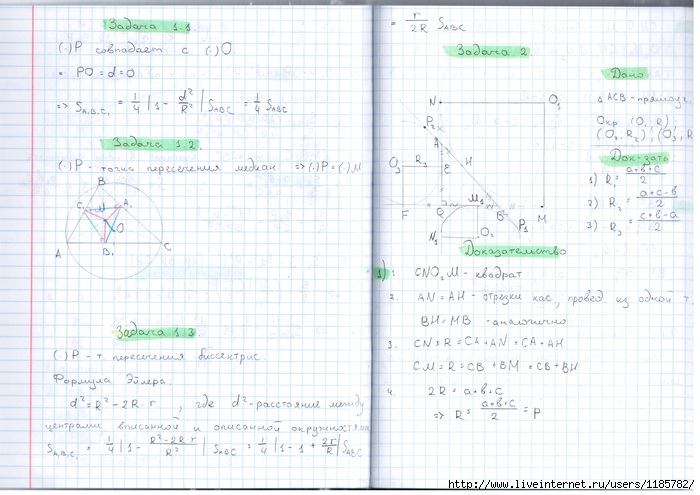 Задача 1.1.
(·)P совпадает с (·)O.
= PO = d = O
=> S A₁B₁C₁ = 1/4 |1 - d²/R²| S ABC = 1/4 S ABC
Задача 1.2.
(·)P - точка пересечения медиан => (·)P = (·)M
B
C₁ M A₁
O
A B₁ C
Задача 1.3.
(·)P - т. пересечения биссектрис.
Формула Эйлера:
d² = R² - 2R·r, где d² - расстояние между
центрами вписанной и описанной окружностями
S A₁B₁C₁ = 1/4 |1 - R²-2Rr/R²| S ABC = 1/4 |1 - 1 + 2r/R| S ABC
= r/2R S ABC
Задача 2.
N O₁
P₂
A H
O₃ R₃ E
F C M₁ B M
N₁ O₂ P₁
Дано
△ ACB - прямоуг.
Окр (O, R),
(O₂, R₂), (O₃, R
Док-зать
1) R₁ = a+b+c/2
2) R₂ = a+c-b/2
3) R₃ = c+b-a/2
Доказательство
1) 1. CNO₁M - квадрат
2. AN = AH - отрезки кас., провед. из одной т.
BH = MB - аналогично
3. CN = R = CA + AN = CA + AH
CM = R = CB + BM = CB + BH
4. 2R = a+b+c
=> R = a+b+c/2 = P
http://www.liveinternet.ru/users/1185782/